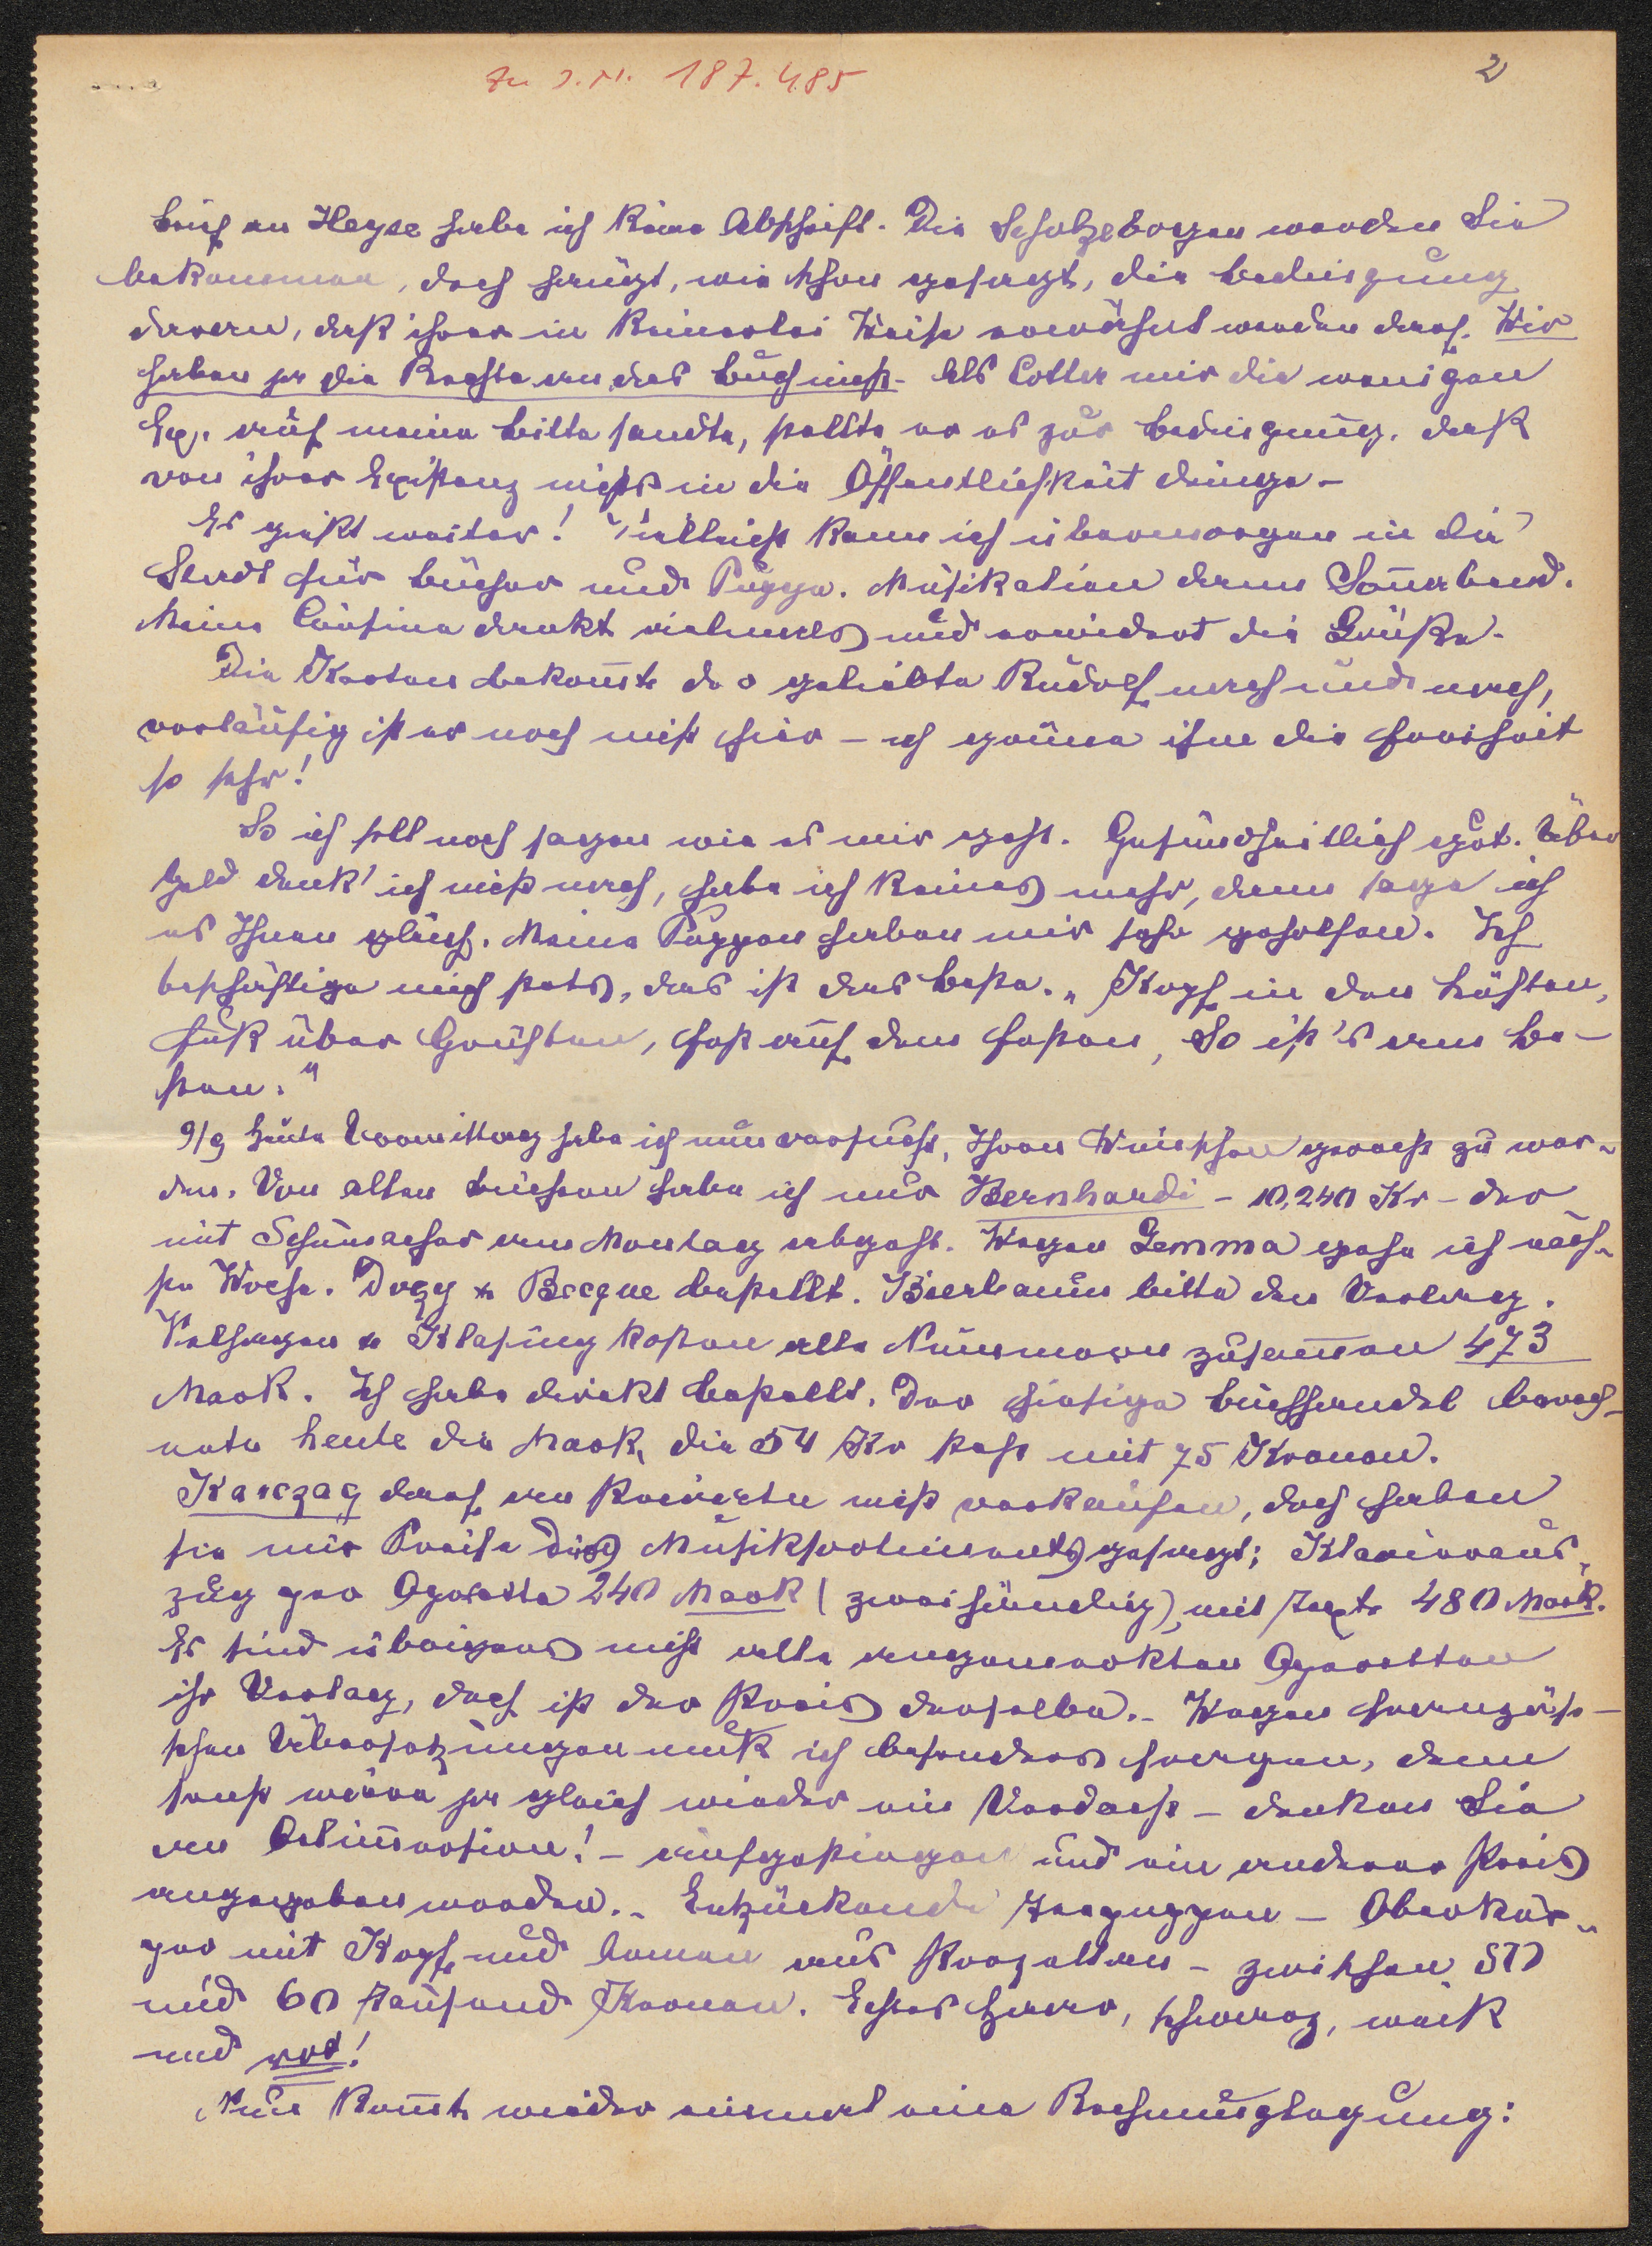 Zu J.N. 187.485
2
brief an Heyse habe ich keine Abschrift. Die Scholzebogen werden Sie
bekommen, doch hängt, wie schon gesagt, die Bedingung
daran, daß ihrer in keinerlei Weise erwähnt werden darf. Wir
haben ja die Rechte an das Buch nicht. Als Cotta mir die wenigen
Ex. auf meine Bitte sandte, stellte er es zur Bedingung, daß
von ihrer Existenz nichts in die Öffentlichkeit dringe. –
Es gießt weiter! Vielleicht kann ich übermorgen in die
Stadt für Bücher und Puppe. Musikalien dann Sonnabend.
Meine Cousine dankt vielmals und erwidert die Grüße.
Die Karten bekommt der geliebte Rudolf nach und nach,
vorläufig ist er noch nicht hier – ich gönne ihm die Freiheit
so sehr!
So ich soll noch sagen wie es mir geht. Gesundheitlich gut. Über
Geld denk' ich nicht nach, habe ich keines mehr, dann sage ich
es Ihnen gleich. Meine Puppen haben mir sehr geholfen. Ich
beschäftige mich stets, das ist das Beste. „Kopf in den Lüften,
Fuß über Grüften, fest auf dem festen, So ist's am be-
sten."
9/9 Heute Vormittag habe ich nun versucht, Ihren Wünschen gerecht zu wer-
den. Von alten Büchern habe ich nur Bernhardi – 10,240 Kr – der
mit Schumacher am Montag abgeht. Wegen Gemma gehe ich näch-
ste Woche. Dozy & Becque bestellt. Bierbaum bitte den Verlag.
Velhagen & Klasing kosten alle Nummern zusammen 473
Mark. Ich habe direkt bestellt. Der hiesige Buchhandel berech-
nete heute die Mark, die 54 Kr steht mit 75 Kronen.
Karczag darf an Private nicht verkaufen, doch haben
sie mir Preise des Musiksortiments gesagt; Klavieraus-
zug pro Operette 240 Mark (zweihändig), mit Text 480 Mark.
Es sind übrigens nicht alle angemerkten Operetten
ihr Verlag, doch ist der Preis derselbe. – Wegen französi-
schen Übersetzungen muß ich besonders fragen, denn
sonst wäre ja gleich wieder ein Verdacht – denken Sie
an – aufgestiegen und ein anderer Preis
angegeben worden. – Entzückende Teepuppen – Oberkör-
per mit Kopf und Armen aus Porzellan – zwischen 50
und 60 Tausend Kronen. Echtes Haar, schwarz, weiß
und rot!
Nun kommt wieder einmal eine Rechnungslegung: